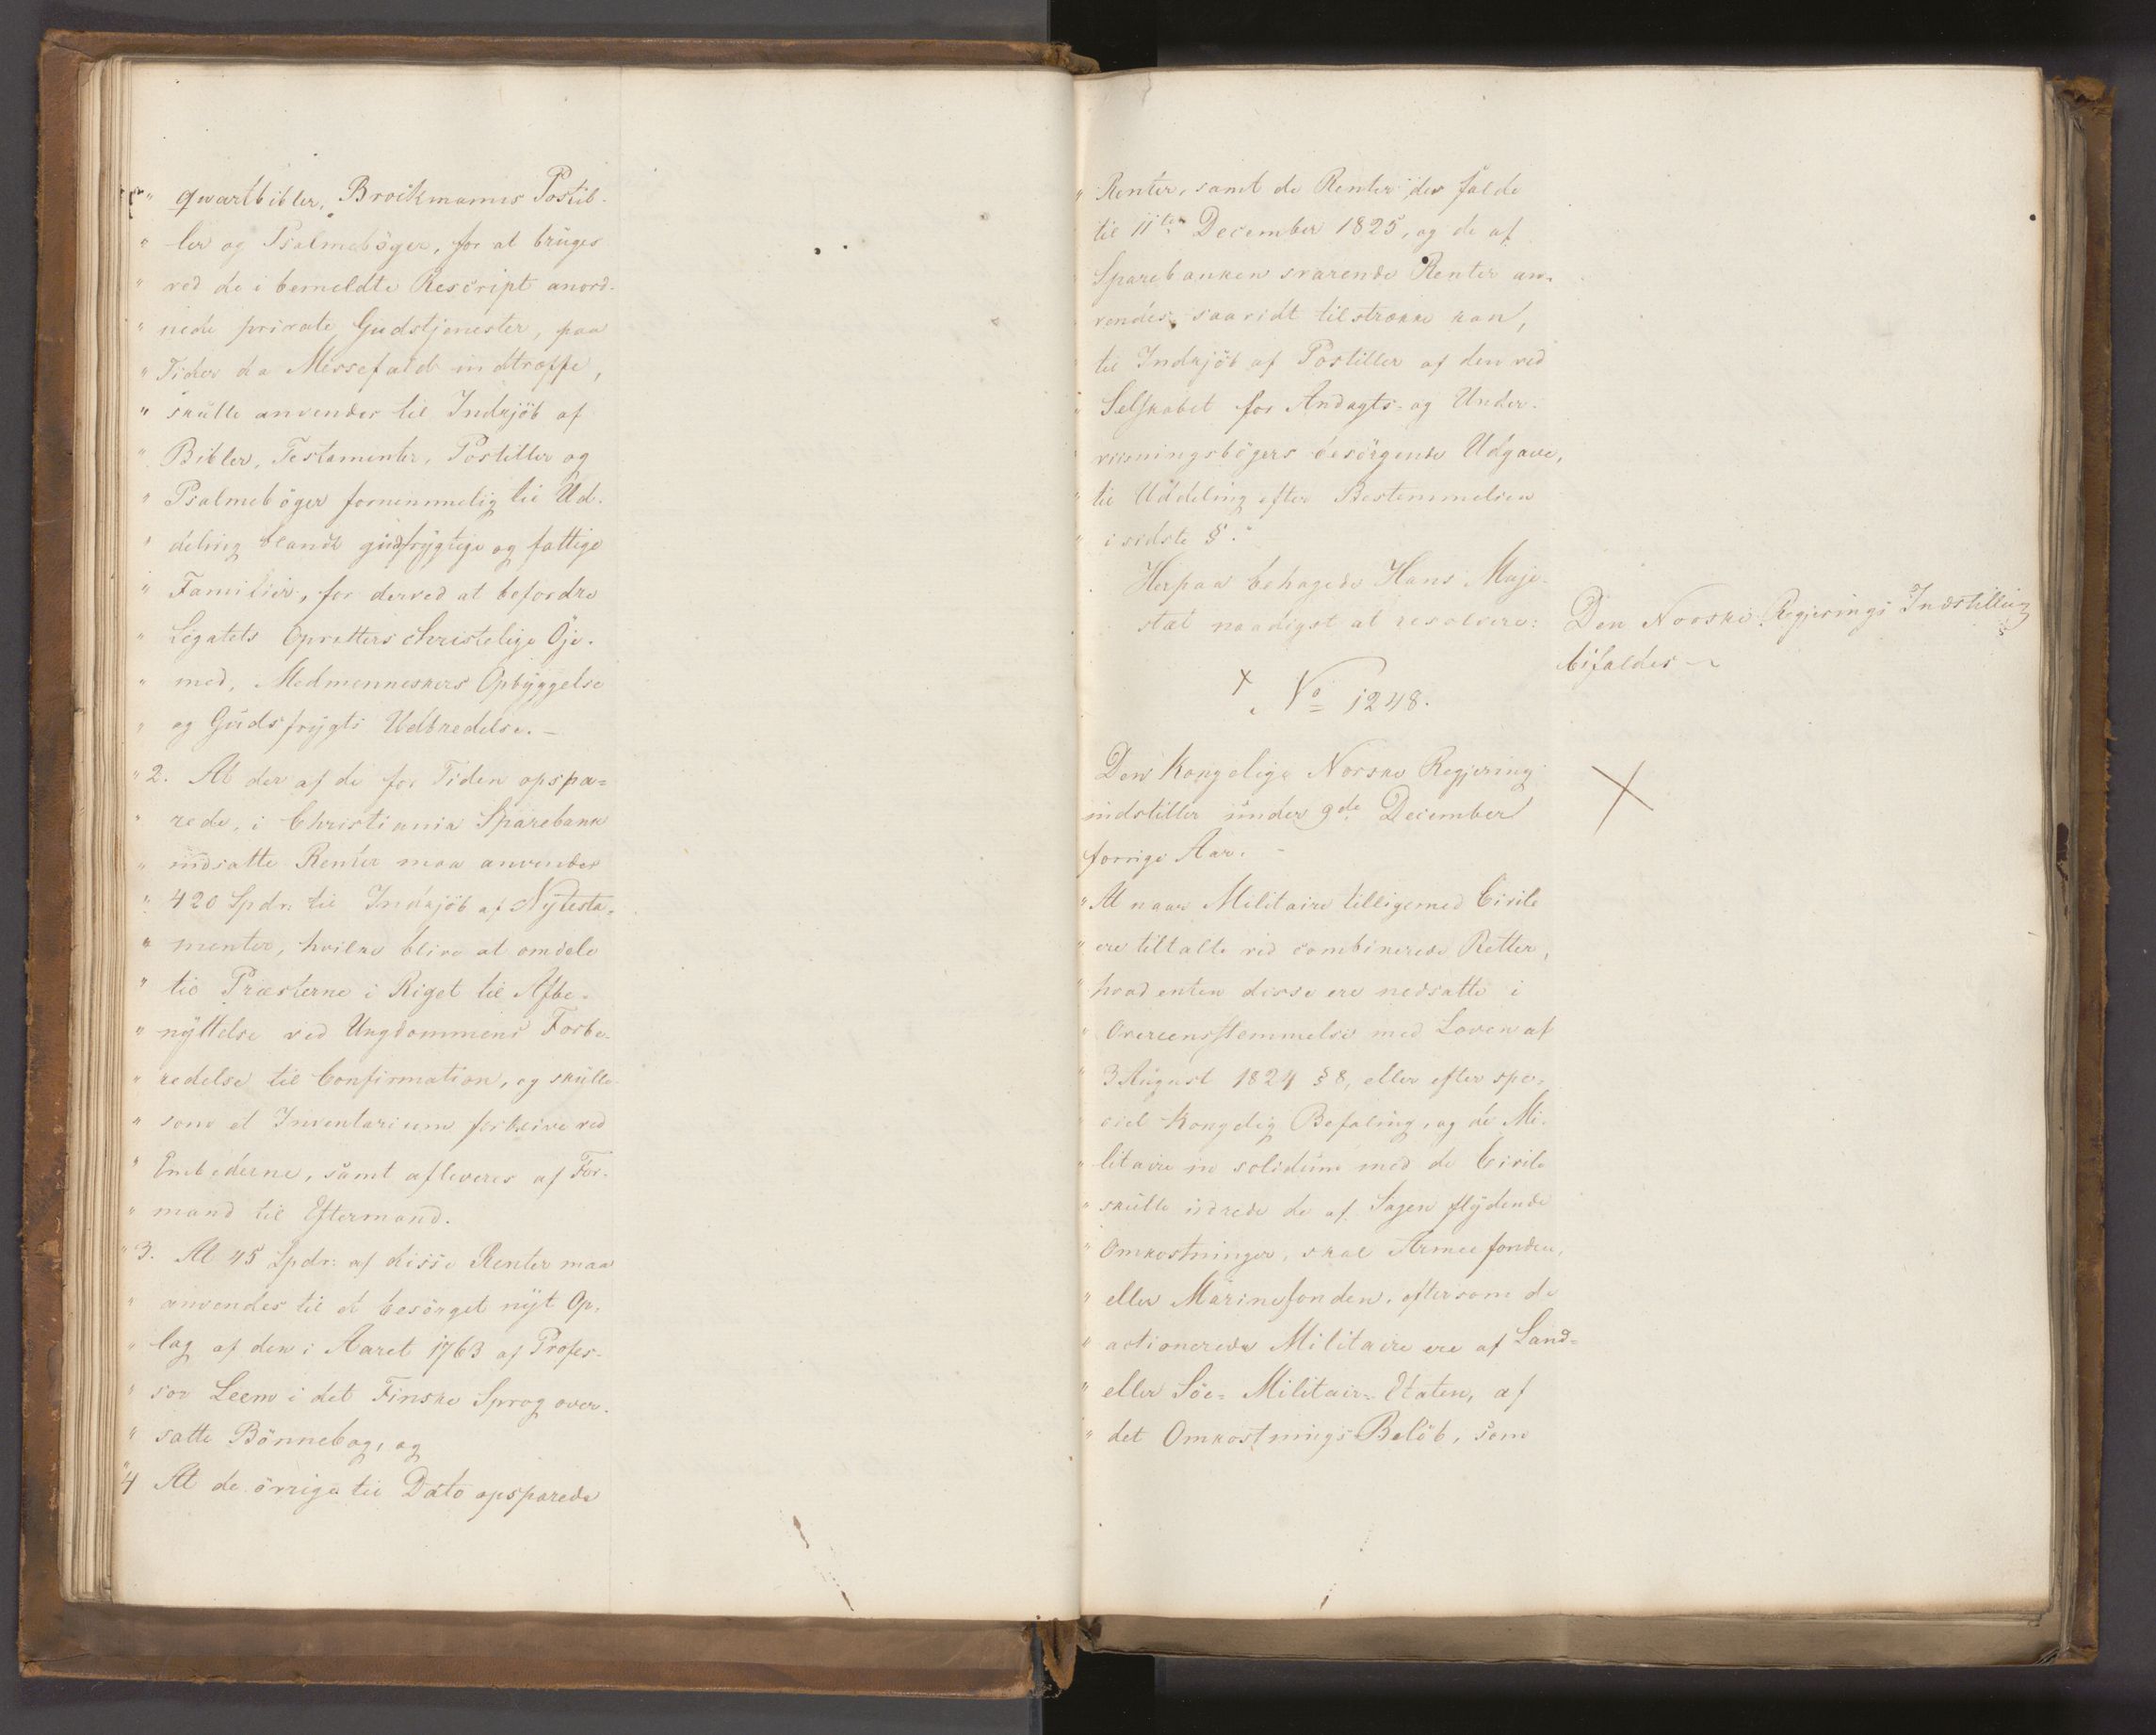 " qvartbibler, Brockmanns Postil-
" ler og Psalmebøger, for at bruges
" ved de i bemeldte Rescript anord-
" nede private Gudstjenester, paa
" Tider da Messefald indtræffe,
" skulle anvendes til Indkjöb af
" Bibler, Testamenter, Postiller og
" Psalmebøger fornemmelig til Ud-
" deling blandt gudfrygtige og fattige
" Familier, for derved at befordre
" Legatets Opretters christelige Öje-
" med, Medmenneskers Opbyggelse
" og Gudsfrygts Udbredelse. –
" 2. At der af de for Tiden opspa-
" rede, i Christiania Sparebank
" indsatte Renter maa anvendes
" 420 Spdr: til Indkjöb af Nytesta-
" menter, hvilke blive at omdele
" til Præsterne i Riget til Afbe-
" nyttelse ved Ungdommens Forbe-
" redelse til Confirmation, og skulle
" som et Inventarium forblive ved
" Embederne, samt afleveres af For-
" mand til Eftermand.
" 3. At 45 Spdr: af disse Renter maa
" anvendes til et besörget nyt Op-
" lag af den i Aaret 1763 af Profes-
" sor Leem i det Finske Sprog over-
" satte Bönnebog, og
" 4 At de övrige til Dato opsparede
" Renter, samt de Renter der falde
til 11te December 1825, og de af
Sparebanken svarende Renter an-
vendes, saavidt tilstrække kan,
til Indkjöb af Postiller af den ved
" Selskabet for Andagts- og Under-
" viisningsbögers besörgende Udgave,
" til Uddeling efter Bestemmelsen
" i sidste §."
Herpaa behagede Hans Maje-
stæt naadigst at resolvere:
Den Norske Regjerings Indstilling
bifaldes
× No 1248.
Den Kongelige Norske Regjering
indstiller under 9de December
forrige Aar. –
" At naar Militaire tilligemed Civile
" ere tiltalte ved combinerede Retter,
" hvad enten disse ere nedsatte i
" Overeensstemmelse med Loven af
" 3 August 1824 § 8, eller efter spe-
" ciel Kongelig Befaling, og de Mi-
" litaire in solidum med de Civile
" skulle udrede de af Sagen flydende
" Omkostninger, skal Armeefonden,
" eller Marinefonden, eftersom de
" actionerede Militaire ere af Land-
" eller Söe-Militair-Etaten, af
" det Omkostnings Belöb, som